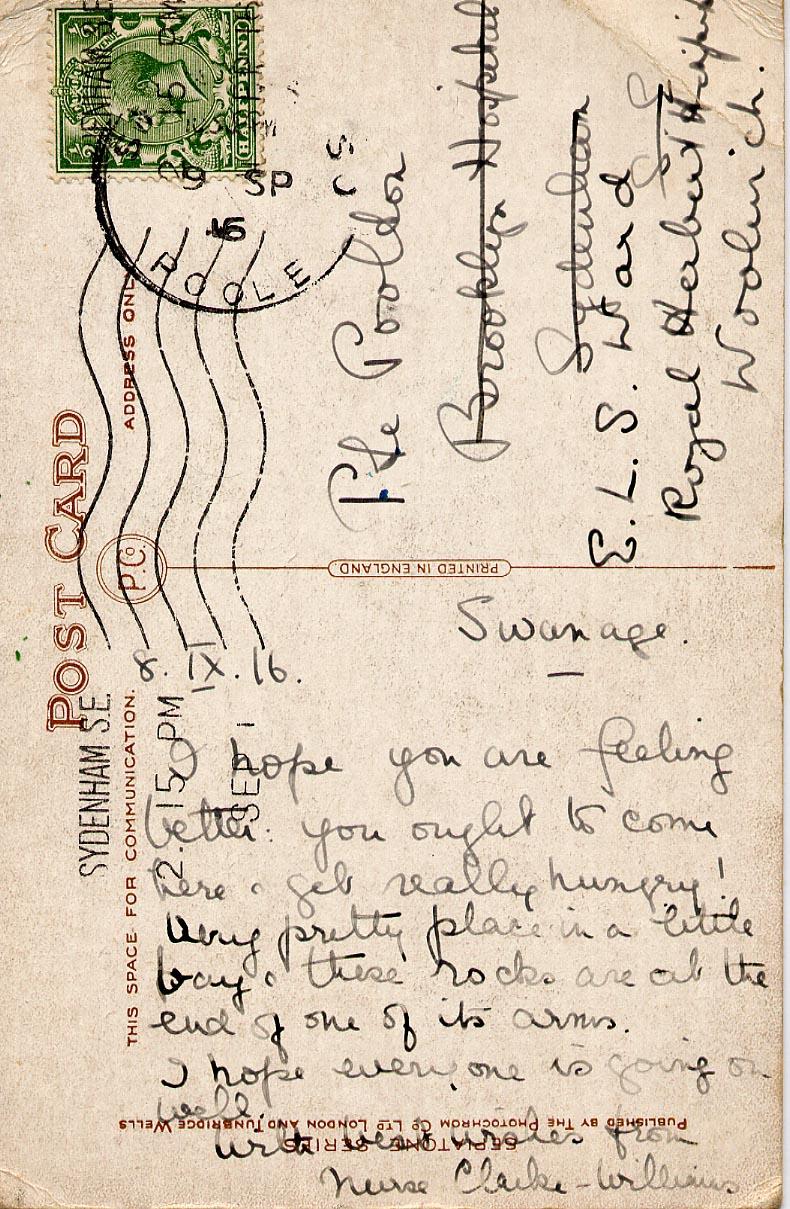 POST CARD
P.Co
THIS SPACE FOR COMMUNICATION.
ADDRESS ONLY
PRINTED IN ENGLAND
SYDENHAM S.E.
2.15 PM
9 SEP
9 SP
16
POOLE
Swanage.
8. IX. 16.
I hope you are feeling
better. you ought to come
here & get really hungry!
Very pretty place in a little
bay & these rocks are at the
end of one of its arms.
I hope everyone is going on
well.
With best wishes from
Nurse Clarke-Williams
Pte Pooldon
Brooklyn Hospital
Sydenham
S.E.
E.L.S. Ward
Royal Herbert Hospit
Woolwich.
SEPIATONE SERIES
PUBLISHED BY THE PHOTOCHROM CO LTD LONDON AND TUNBRIDGE WELLS